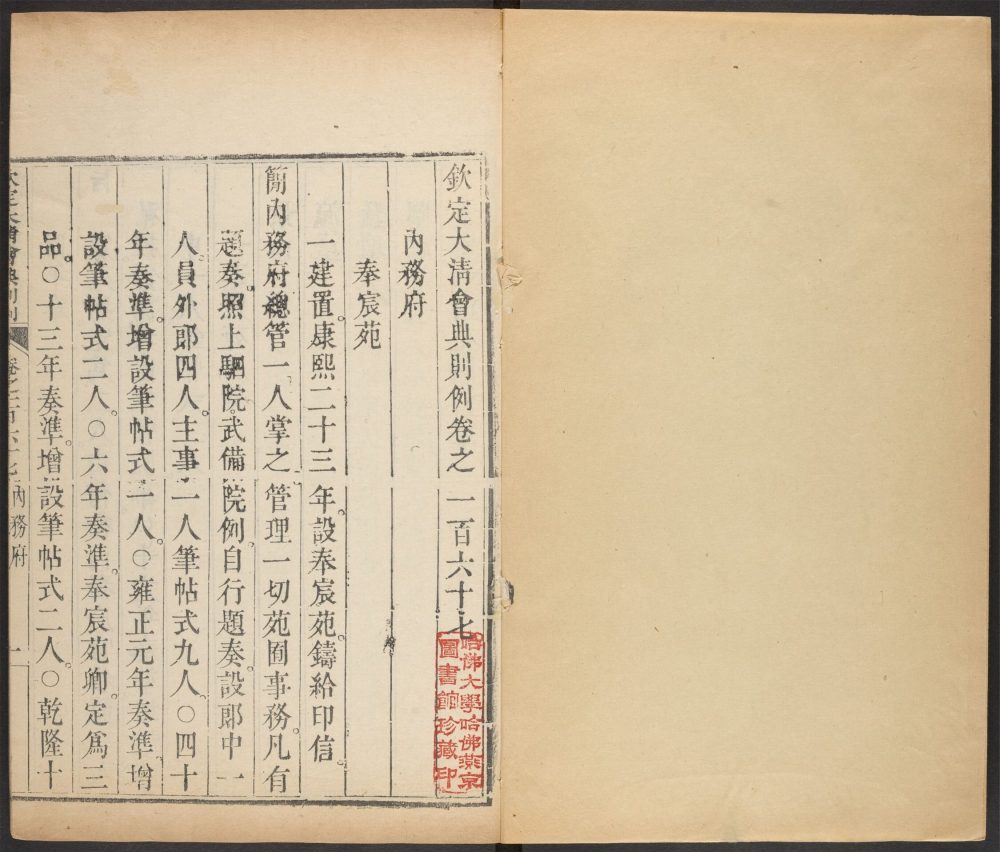 欽定大清會典則例卷之一百六十七
內務府
奉宸苑
一建置。康熙二十三年。設奉宸苑。鑄給印信
簡內務府總管一人掌之管理一切苑囿事務。凡有
題奏。照上駟院。武備院例。自行題奏。設郎中一
人。員外郎四人。主事一人筆帖式九人。〇四十
年奏準。增設筆帖式二人。〇雍正元年奏準。增
設筆帖式二人。〇六年奏準。奉宸苑卿。定爲三
品。〇十三年奏準。增設筆帖式二人。〇乾隆十
欽定大清會典則例
卷之一百六十七 內務府
一
哈佛大學哈佛燕京
圖書館珍藏印